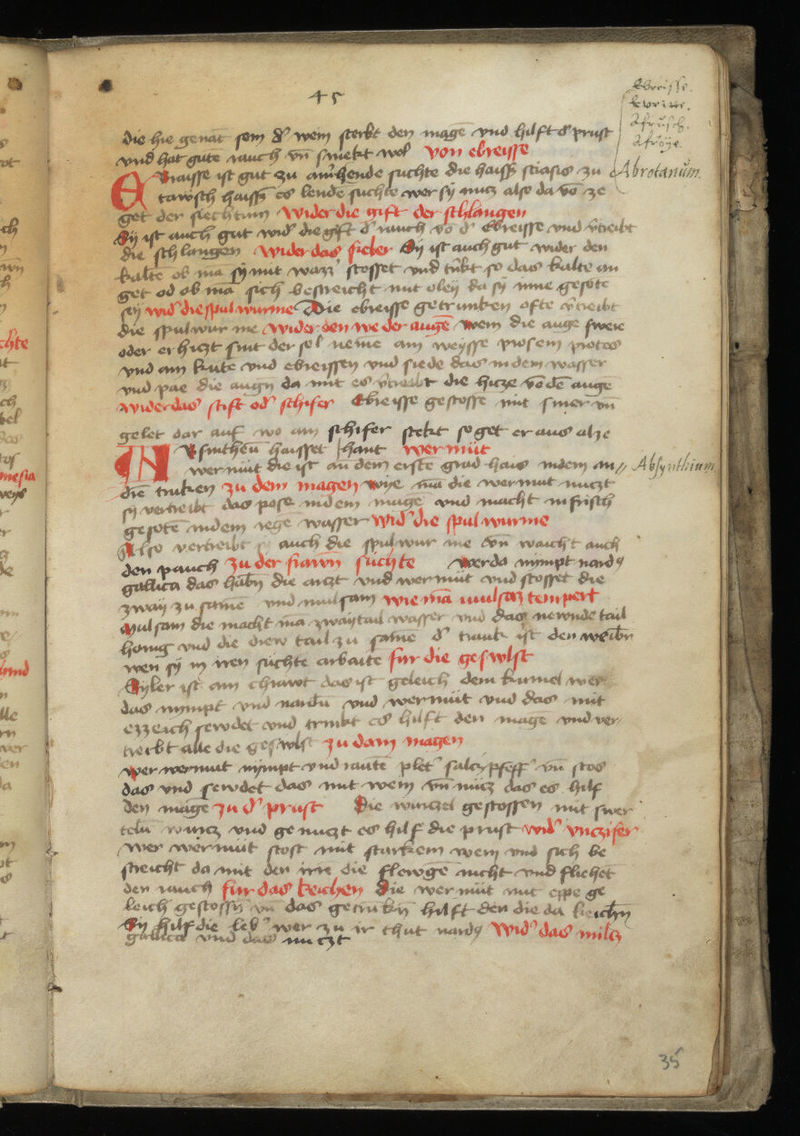 45
Ebreisse.
die hie genāt sein d' wein sterkt den magē vnd hilft d' prust
vnd hat gute rauch vn̄ smekt wol von ebreisse
Abrotanum.
Ebraisse ist gut zu die haiss zu
haiss es lende suchte wer sÿ nuz also da vō ze
get der siechtum wider die gift der schlangen
Sÿ ist auch gut wid' die gift d' rauch vō d' Ebreisse vnd v'treibt
die schlangen wider das fieber Sÿ ist auch gut wider den
kalte ob ma sÿ mit wazz' stosset vnd tr̄ikt so das kalte an
get od ob mā sich bestreicht mit oleÿ da sÿ inne gesote
seÿ wid' die spulwurme Die ebreisse getrunken ofte v'treibt
die spulwur me wider den we der augē wem die auge swere
oder erhiczt sint der sol neme ain weÿsse prosem protes
vnd ain kute vnd ebreissen vnd siede das in dem wasser
vnd pae die augn da mit es v'treibt die hicze vō dē auge
wider das stift od' schifer Ebreisse gestosse mit smer vn̄
gelet dar auf wo ain schifer stekt so get er aus alze
Absinthiu haisset haut wermůt
Absynthium
wermůt die ist an dem erste grad hais in dem an
die truken zu dem magen wÿe mā die wermut nuczt
sÿ vertreibt das pose in dem mage vnd macht in frisch
gesotē in dem regē wasser wid' die spulwurme
Also vertreibt sÿ auch die spulwur me vn̄ waicht auch
den pauch zu der frawn suchte Wer da nÿmpt nardÿ
gallica das habn̄ die arczt vnd wermut vnd stosset die
zwaÿ zu samē vnd mulsam wie mā mulsaz tempert
Mulsam die macht ma zwaÿtail wasser vnd das newnde tail
honig vnd die diew tail zu same d' trank ist den weibn̄
wen sÿ in iren suchte arbaite fur die geswlst
Syler ist ain chrawt das ist geleich dem kumel wer
das nÿmpt vnd nardu vnd wermůt vnd das mit
ezzeich sewdet vnd trinkt es hilft den mage vnd ver
treibt alle die geswlst zu dam magen
Wer wermut nÿmpt vnd rautē plet' salcz pfeff' vn̄ stos
das vnd sewdet das mit wein vn̄ nucz das es hilf
den mage zu d' prust Die wurczel gestossen mit swer
teln wurcz vnd ge nuczt es hilf die prust wid' vnczifer
Wer wermůt stost mit starkem wein vnd sich be
streicht da mit den irre die flewge nicht vnd fliehet
den rauch fur das keichen Die wermůt mit eppe ge
leich gestossn̄ vn̄ das getrukn̄ hilft den die da keichn̄
Sÿ hilf die leb' wer zu ir thut nardÿ wid' das milcz
gallica vnd das nuczt
35